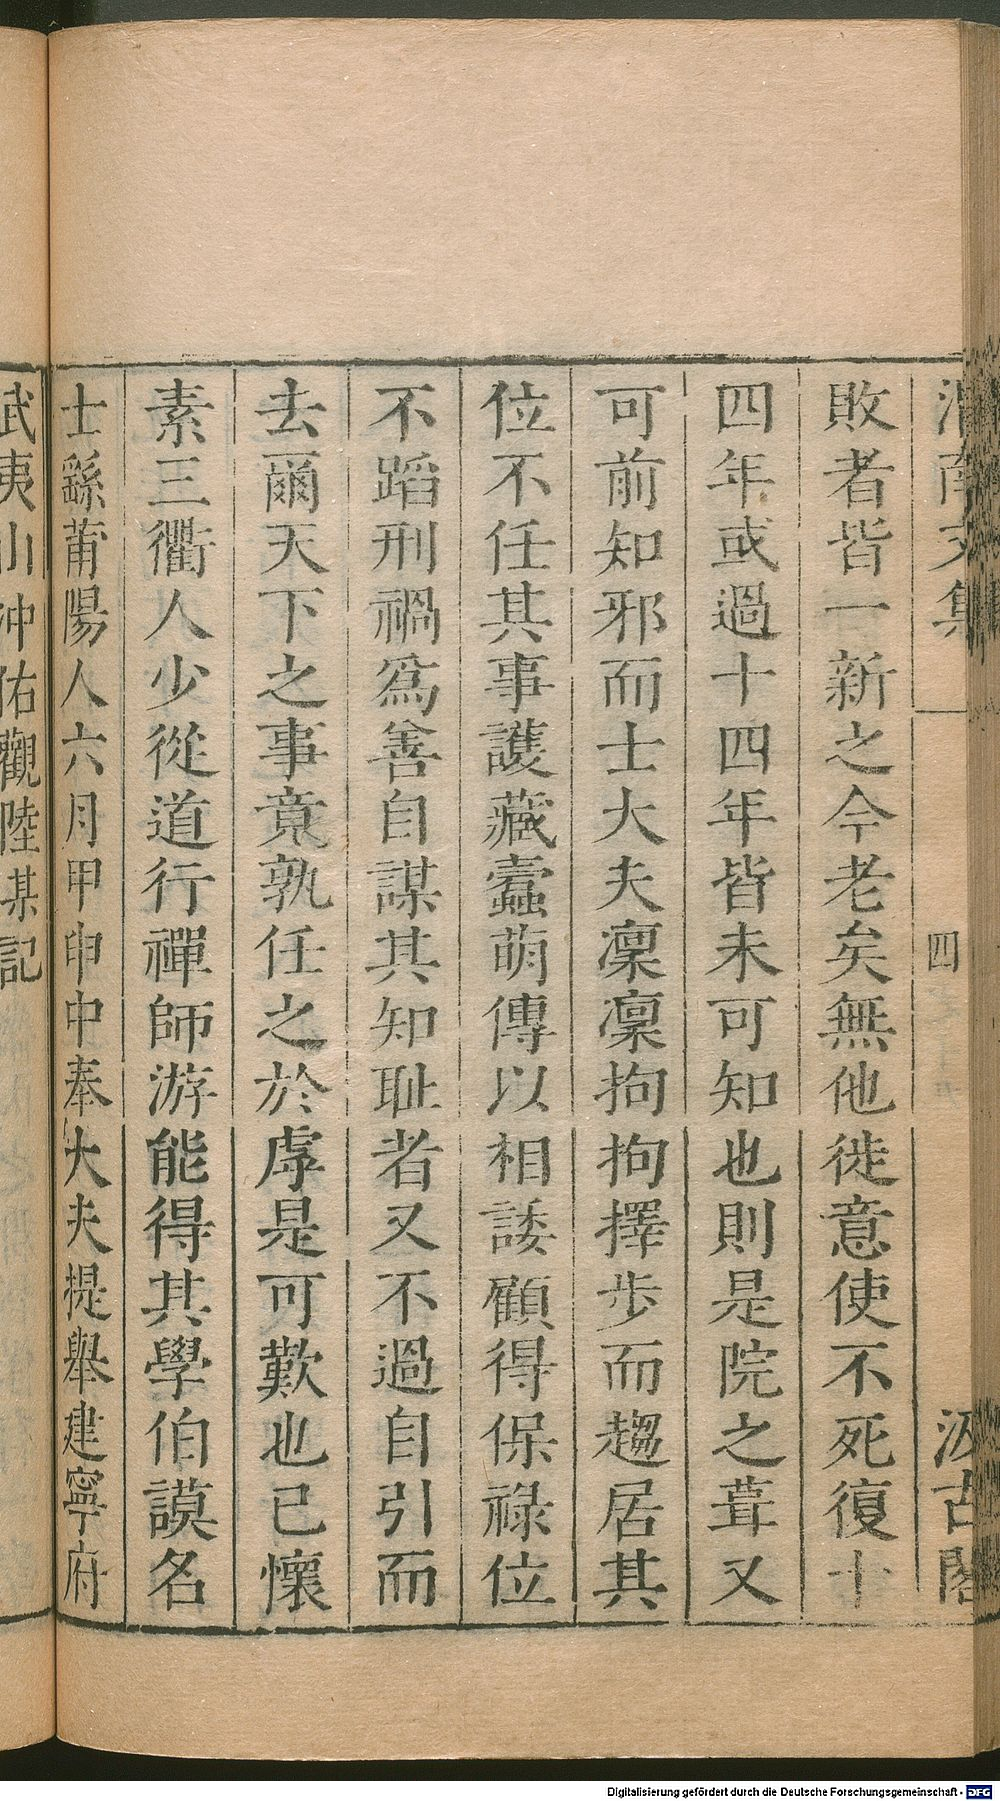 渭南文集　四　汲古閣
敗者皆一新之今老矣無他徙意使不死復十
四年或過十四年皆未可知也則是院之葺又
可前知邪而士大夫凜凜拘拘擇步而趨居其
位不任其事護藏蠹萌傳以相諉顧得保祿位
不蹈刑禍爲善自謀其知耻者又不過自引而
去爾天下之事竟孰任之於虖是可歎也已懷
素三衢人少從道行禪師游能得其學伯謨名
士繇莆陽人六月甲申中奉大夫提舉建寧府
武夷山冲佑觀陸某記
Digitalisierung gefördert durch die Deutsche Forschungsgemeinschaft - DFG